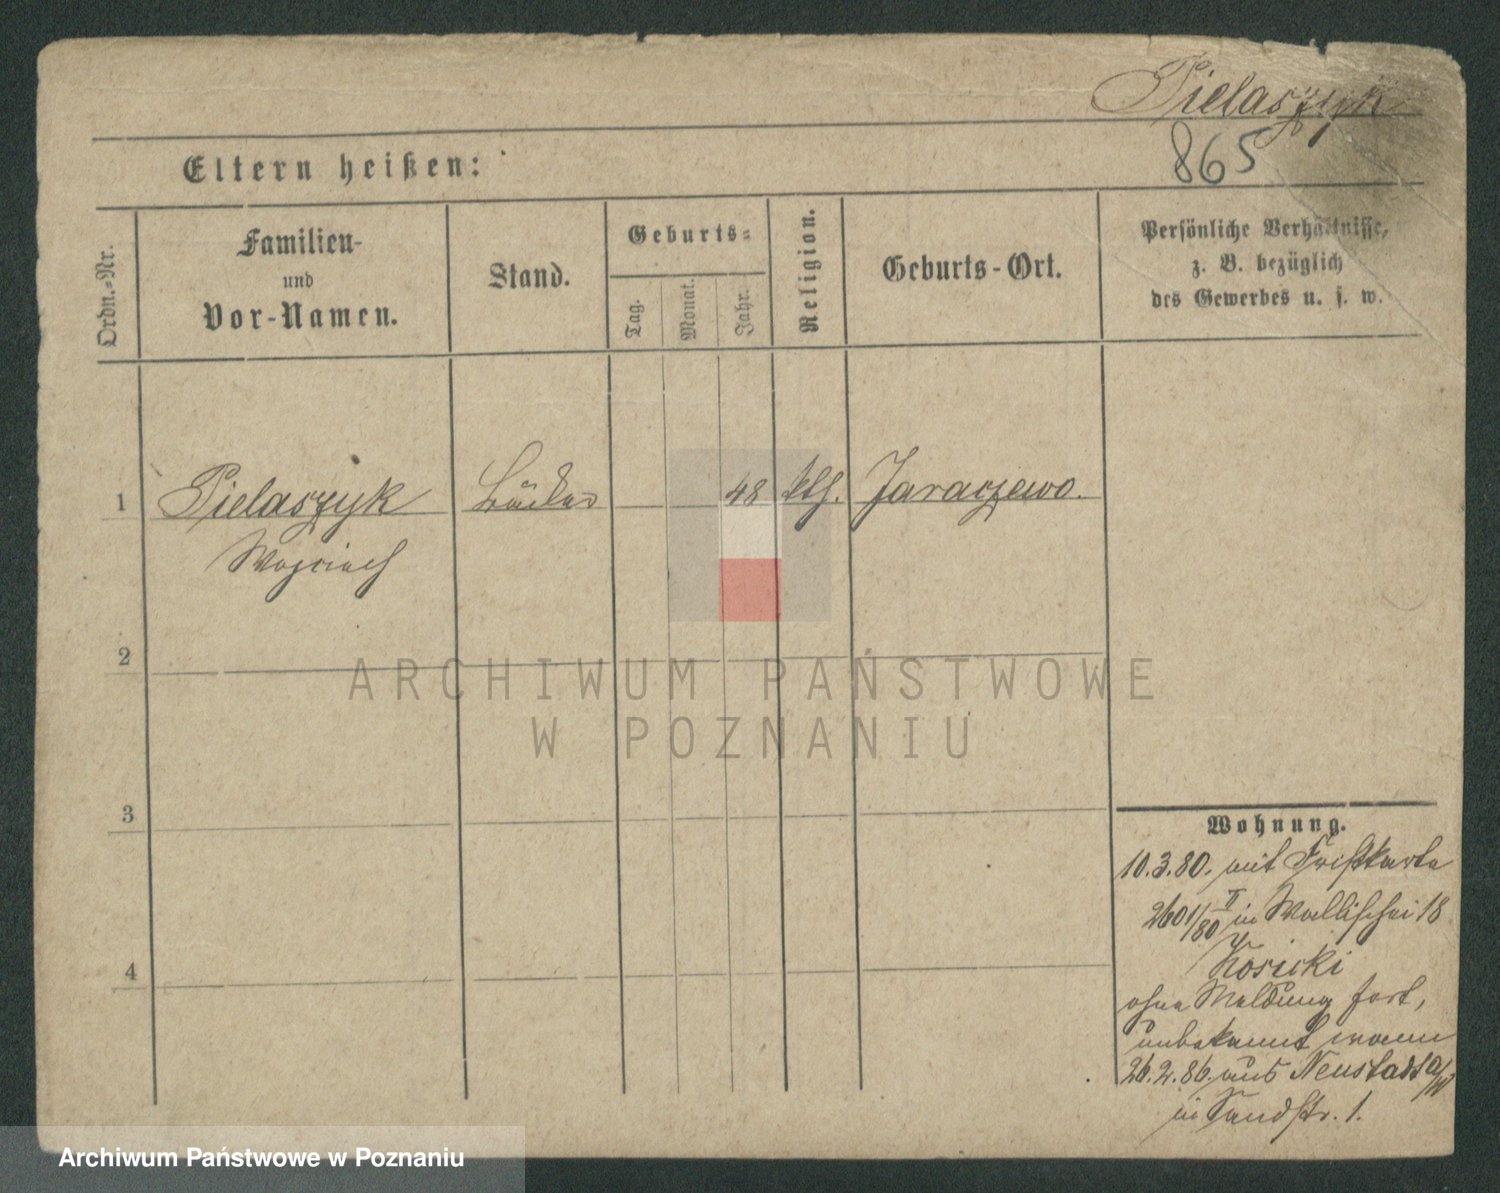 Pielaszyk
865
Eltern heißen:
Ordn.-Nr.
Familien-
und
Vor-Namen.
Stand.
Geburts-
Tag.
Monat.
Jahr.
Religion.
Geburts-Ort.
Persönliche Verhältnisse,
z. B. bezüglich
des Gewerbes u. s. w.
1 Pielaszyk Bäcker 48 kth. Jaraczewo.
Wojciech
2
3
4
Wohnung.
10.3.80. mit Fristkarte
2601/80 II in Wallischei 18
Kosicki
ohne Meldung fort,
unbekannt wann
26.2.86. aus Neustadt a/W
in Sandstr. 1.
ARCHIWUM PAŃSTWOWE
W POZNANIU
Archiwum Państwowe w Poznaniu